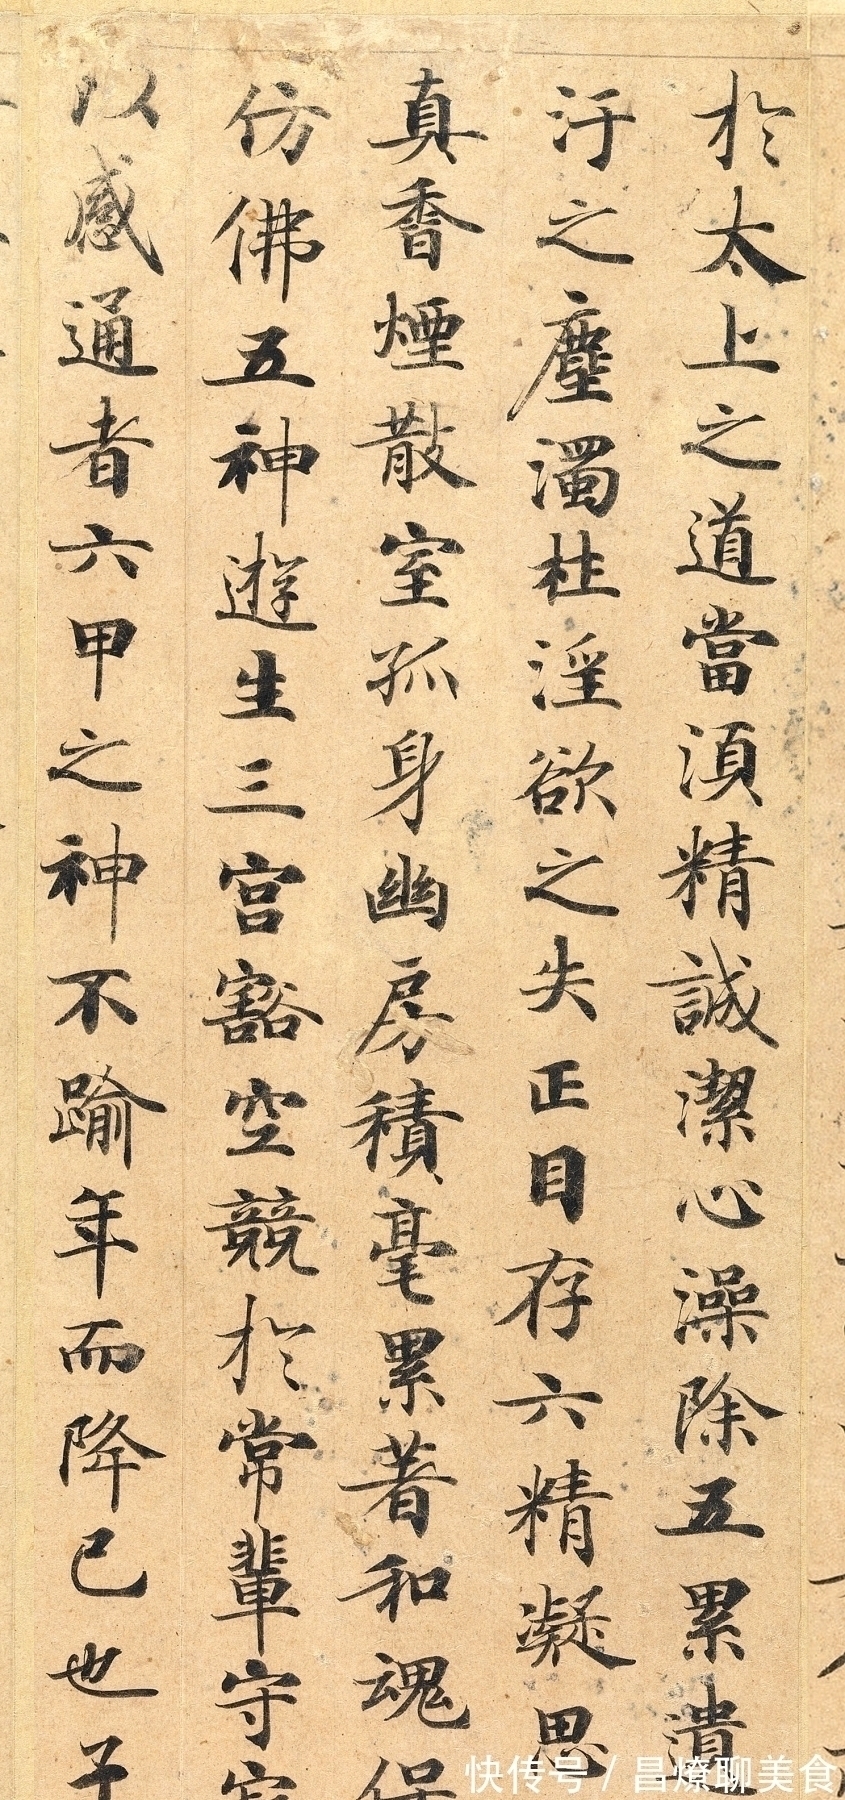 於太上之道當湏精誠潔心澡除五累遺
汙之塵濁杜淫欲之失正目存六精凝思
真香煙散室孤身幽房積毫累著和魂保
仿佛五神遊生三宮豁空競於常輩守寂
以感通者六甲之神不踰年而降已也子
快传号/昌燎聊美食